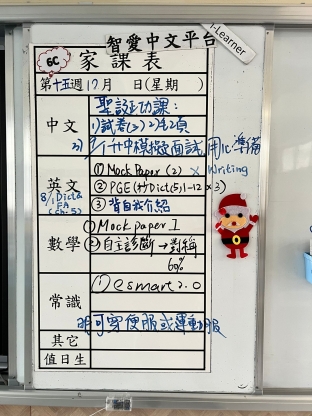 智愛中文平台
i-Learner
6C
家課表
第十五週 12月 日(星期 )
聖誕功課:
中文 1)試卷(3) 2)毛2頁
3) 升中模擬面試,用心準備
英文 ① Mock Paper (2) x Writing
② PGE (#) Dict (5,1-12 x3)
8/1 Dict2
③ 背自我介紹
數學 ① Mock paper 1
② 自主診斷 → 對稱
60%
常識 ① esmart 2.0
明可穿便服或運動服
其它
值日生